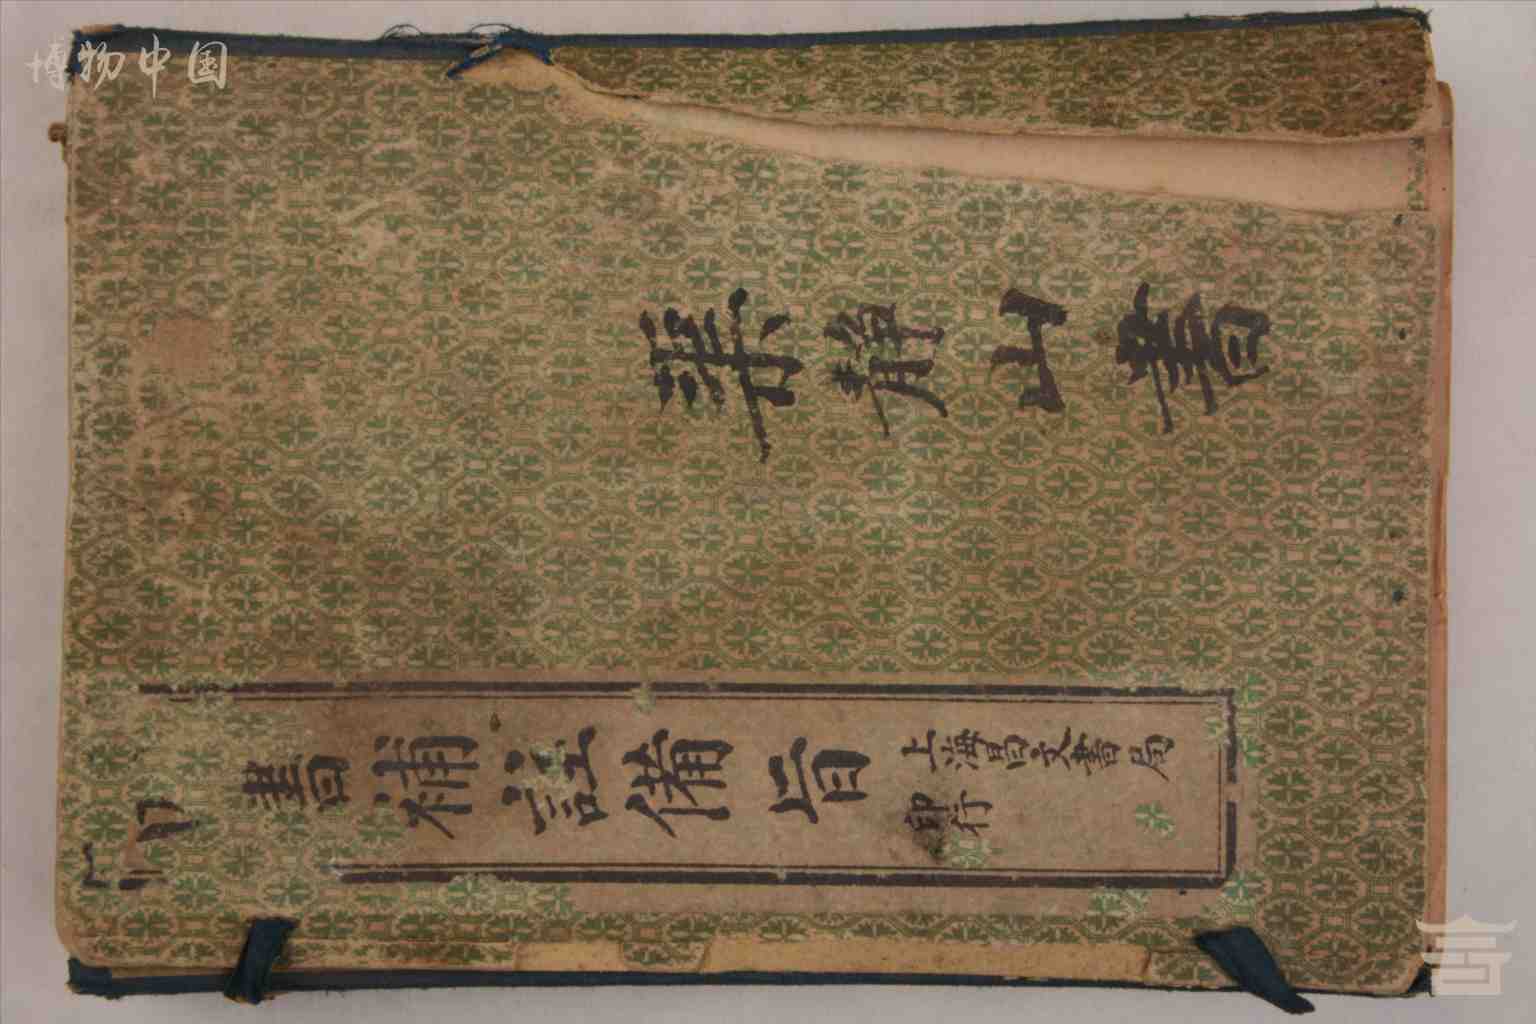 博物中国
靜山書
書補註備旨
上海昌文書局
印行